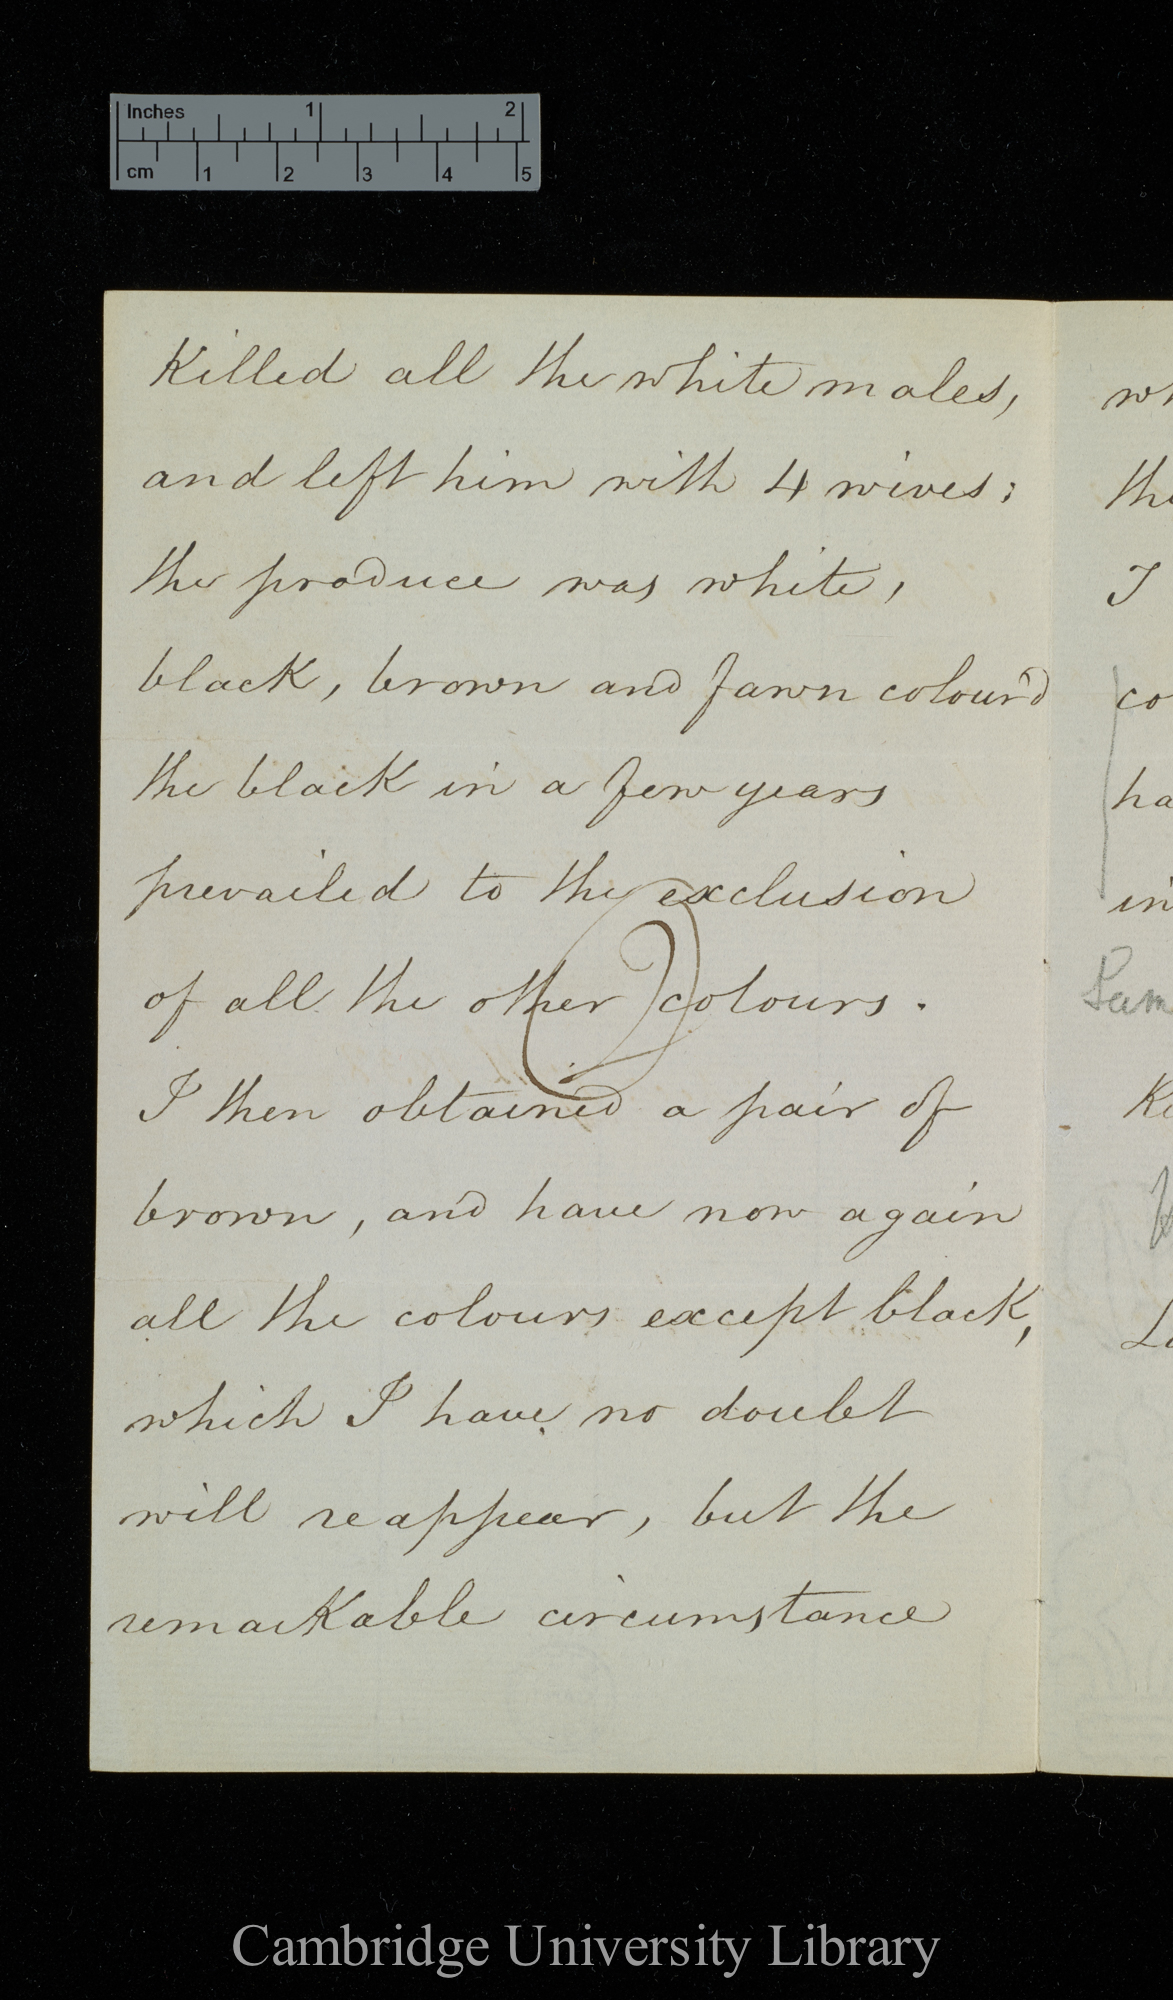 Inches 1 2
cm 1 2 3 4 5
Killed all the white males,
and left him with 4 wives;
the produce was white,
black, brown and fawn colour'd
the black in a few years
prevailed to the exclusion
of all the other colours.
I then obtained a pair of
brown, and have now again
all the colours except black,
which I have no doubt
will reappear, but the
remarkable circumstance
2
wh
the
I
co
ha
in
Sam
Ke
La
Cambridge University Library